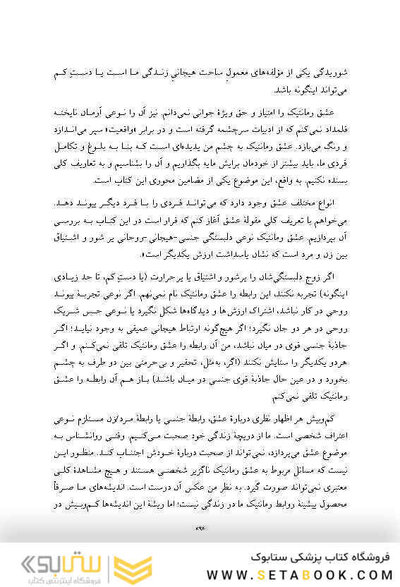 شوریدگی یکی از مؤلفه‌های معمول ساخت هیجانی زندگی ما است یا دست کم
می‌تواند اینگونه باشد.
عشق رمانتیک را امتیاز و حق ویژهٔ جوانی نمی‌دانم. نیز آن را نوعی آرمان ناپخته
قلمداد نمی‌کنم که از ادبیات سرچشمه گرفته است و در برابر «واقعیت» سپر می‌اندازد
و رنگ می‌بازد. عشق رمانتیک به چشم من پدیده‌ای است که بنا به بلوغ و تکامل
فردی ما، باید بیشتر از خودمان برایش مایه بگذاریم و آن را بشناسیم و به تعاریف کلی
بسنده نکنیم. به واقع، این موضوع یکی از مضامین محوری این کتاب است.
انواع مختلف عشق وجود دارد که می‌تواند فردی را با فرد دیگر پیوند دهد.
می‌خواهم با تعریف کلی مقولهٔ عشق آغاز کنم که قرار است در این کتاب به بررسی
آن بپردازیم. عشق رمانتیک نوعی دلبستگی جنسی-هیجانی-روحانی پر شور و اشتیاق
بین زن و مرد است که نشان پاسداشت ارزش یکدیگر است».
اگر زوج دلبستگی‌شان را پرشور و اشتیاق یا پرحرارت (یا دست‌کم، تا حد زیادی
اینگونه) تجربه نکنند، این رابطه را عشق رمانتیک نام نمی‌نهم. اگر نوعی تجربهٔ پیوند
روحی در کار نباشد، اشتراک ارزش‌ها و دیدگاه‌ها شکل نگیرد یا نوعی حس شریک
روحی در هر دو جان نگیرد؛ اگر هیچ‌گونه ارتباط هیجانی عمیقی به وجود نیاید؛ اگر
جاذبهٔ جنسی قوی در میان نباشد، من آن رابطه را عشق رمانتیک تلقی نمی‌کنم. و اگر
هردو یکدیگر را ستایش نکنند (اگر، به‌مثل، تحقیر و بی‌حرمتی بین دو طرف به چشم
بخورد و در عین حال جاذبهٔ قوی جنسی در میان باشد) باز هم آن رابطه را عشق
رمانتیک تلقی نمی‌کنم.
کم‌وبیش هر اظهار نظری دربارهٔ عشق، رابطهٔ جنسی یا رابطهٔ مرد/زن مستلزم نوعی
اعتراف شخصی است. ما از دریچهٔ زندگی خود صحبت می‌کنیم. وقتی روانشناس به
موضوع عشق می‌پردازد، نمی‌تواند از صحبت دربارهٔ خودش اجتناب کند. منظور این
نیست که مسائل مربوط به عشق رمانتیک ناگزیر شخصی هستند و هیچ مشاهدهٔ کلی
معتبری نمی‌تواند صورت گیرد. به نظر من عکس آن درست است. اندیشه‌های ما صرفاً
محصول پیشینهٔ روابط رمانتیک ما در زندگی نیست؛ اما ریشهٔ این اندیشه‌ها کم‌وبیش در
ستابوک
فروشگاه اینترنتی کتاب
فروشگاه کتاب پزشکی ستابوک
WWW.SETABOOK.COM